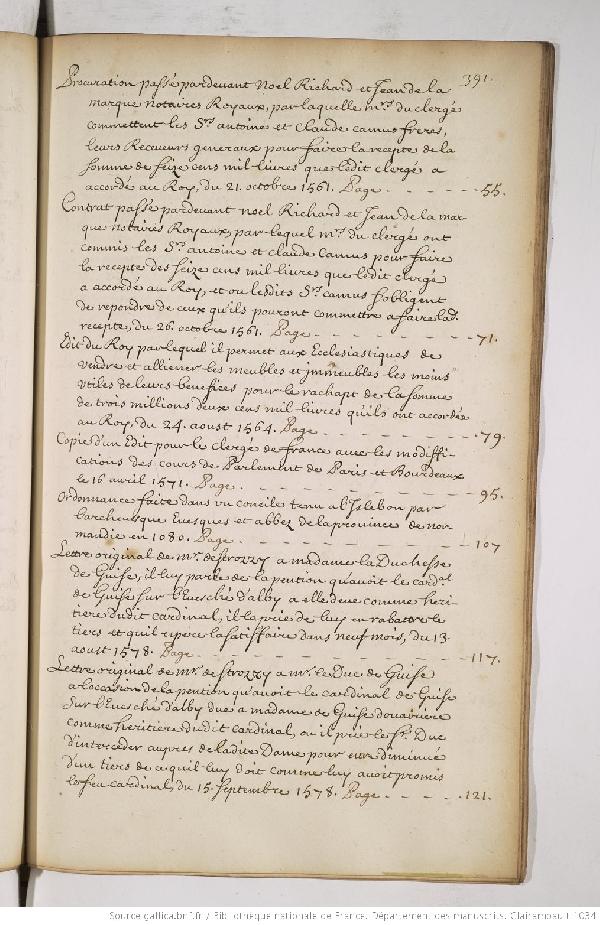 391.
Procuration passée pardevant Noel Richard et Jean de la
marque notaires Royaux, par laquelle mrs. du clergé
commettent les Srs. antoine et Claude camus freres,
leurs Receveurs generaux pour faire la recepte de la
somme de seize cens mil livres que ledit clergé a
accordé au Roy, du 21. octobre 1561. Page - - - - - - 55.
Contrat passé pardevant noel Richard et Jean de la mar-
que notaires Royaux, par lequel mrs. du clergé ont
commis les Srs. antoine et claude Camus pour faire
la recepte des seize cens mil livres que ledit clergé
a accordé au Roy, et ou lesdits Srs. camus sobligent
de repondre de ceux qu'ils pouront commettre a faire lad.
recepte, du 26. octobre 1561. Page - - - - - - 71.
Edit du Roy par lequel il permet aux Ecclesiastiques de
vendre et alliener les meubles et immeubles les moins
utiles de leurs benefices pour le rachapt de la somme
de trois millions deux cens mil livres qu'ils ont accordée
au Roy, du 24. aoust 1564. Page - - - - - - 79.
Copie d'un Edit pour le clergé de france avec les modiffi-
cations des cours de Parlement de Paris et Bourdeaux
le 16 avril 1571. Page - - - - - - 95.
Ordonnance faite dans un concile tenu a l'Islebon par
l'archevesque Evesques et abbez de la province de nor-
mandie en 1080. Page - - - - - - 107
Lettre original de mr. de strozzy a madame la Duchesse
de Guise, il luy parle de la pention qu'avoit le cardal.
de Guise sur l'Evesché d'alby a elle deue comme heri-
tiere dudit cardinal, il la prie de luy en rabattre le
tiers et quil espere la satisfaire dans neuf mois, du 13.
aoust 1578. Page - - - - - - 117.
Lettre original de mr. de strozzy a mr. le Duc de Guise
a l'occasion de la pention qu'avoit le cardinal de Guise
sur l'Evesché d'alby due a madame de Guise douairiere
comme heritiere dudit cardinal, ou il prie le Sr. Duc
d'interceder aupres de ladite Dame pour estre diminué
d'un tiers de ce quil luy doit comme luy avoit promis
ledit feu cardinal, du 15. septembre 1578. Page - - - - 121.
Source gallica.bnf.fr / Bibliothèque nationale de France. Département des manuscrits. Clairambault 1034